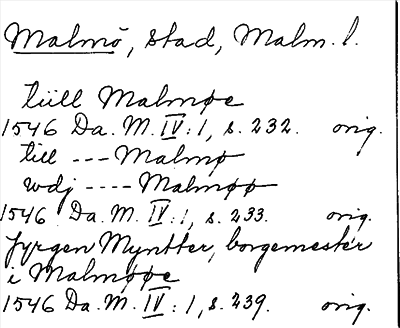 Malmö, stad, Malm. l.
tüll Malmøe
1546 Da. M. IV: 1, s. 232. orig.
till --- Malmø
wdj ---- Malmøø
1546 Da. M. IV: 1, s. 233. orig.
Jyrgen Myntter, borgemester
i Malmøøe
1546 Da. M. IV: 1, s. 239. orig.